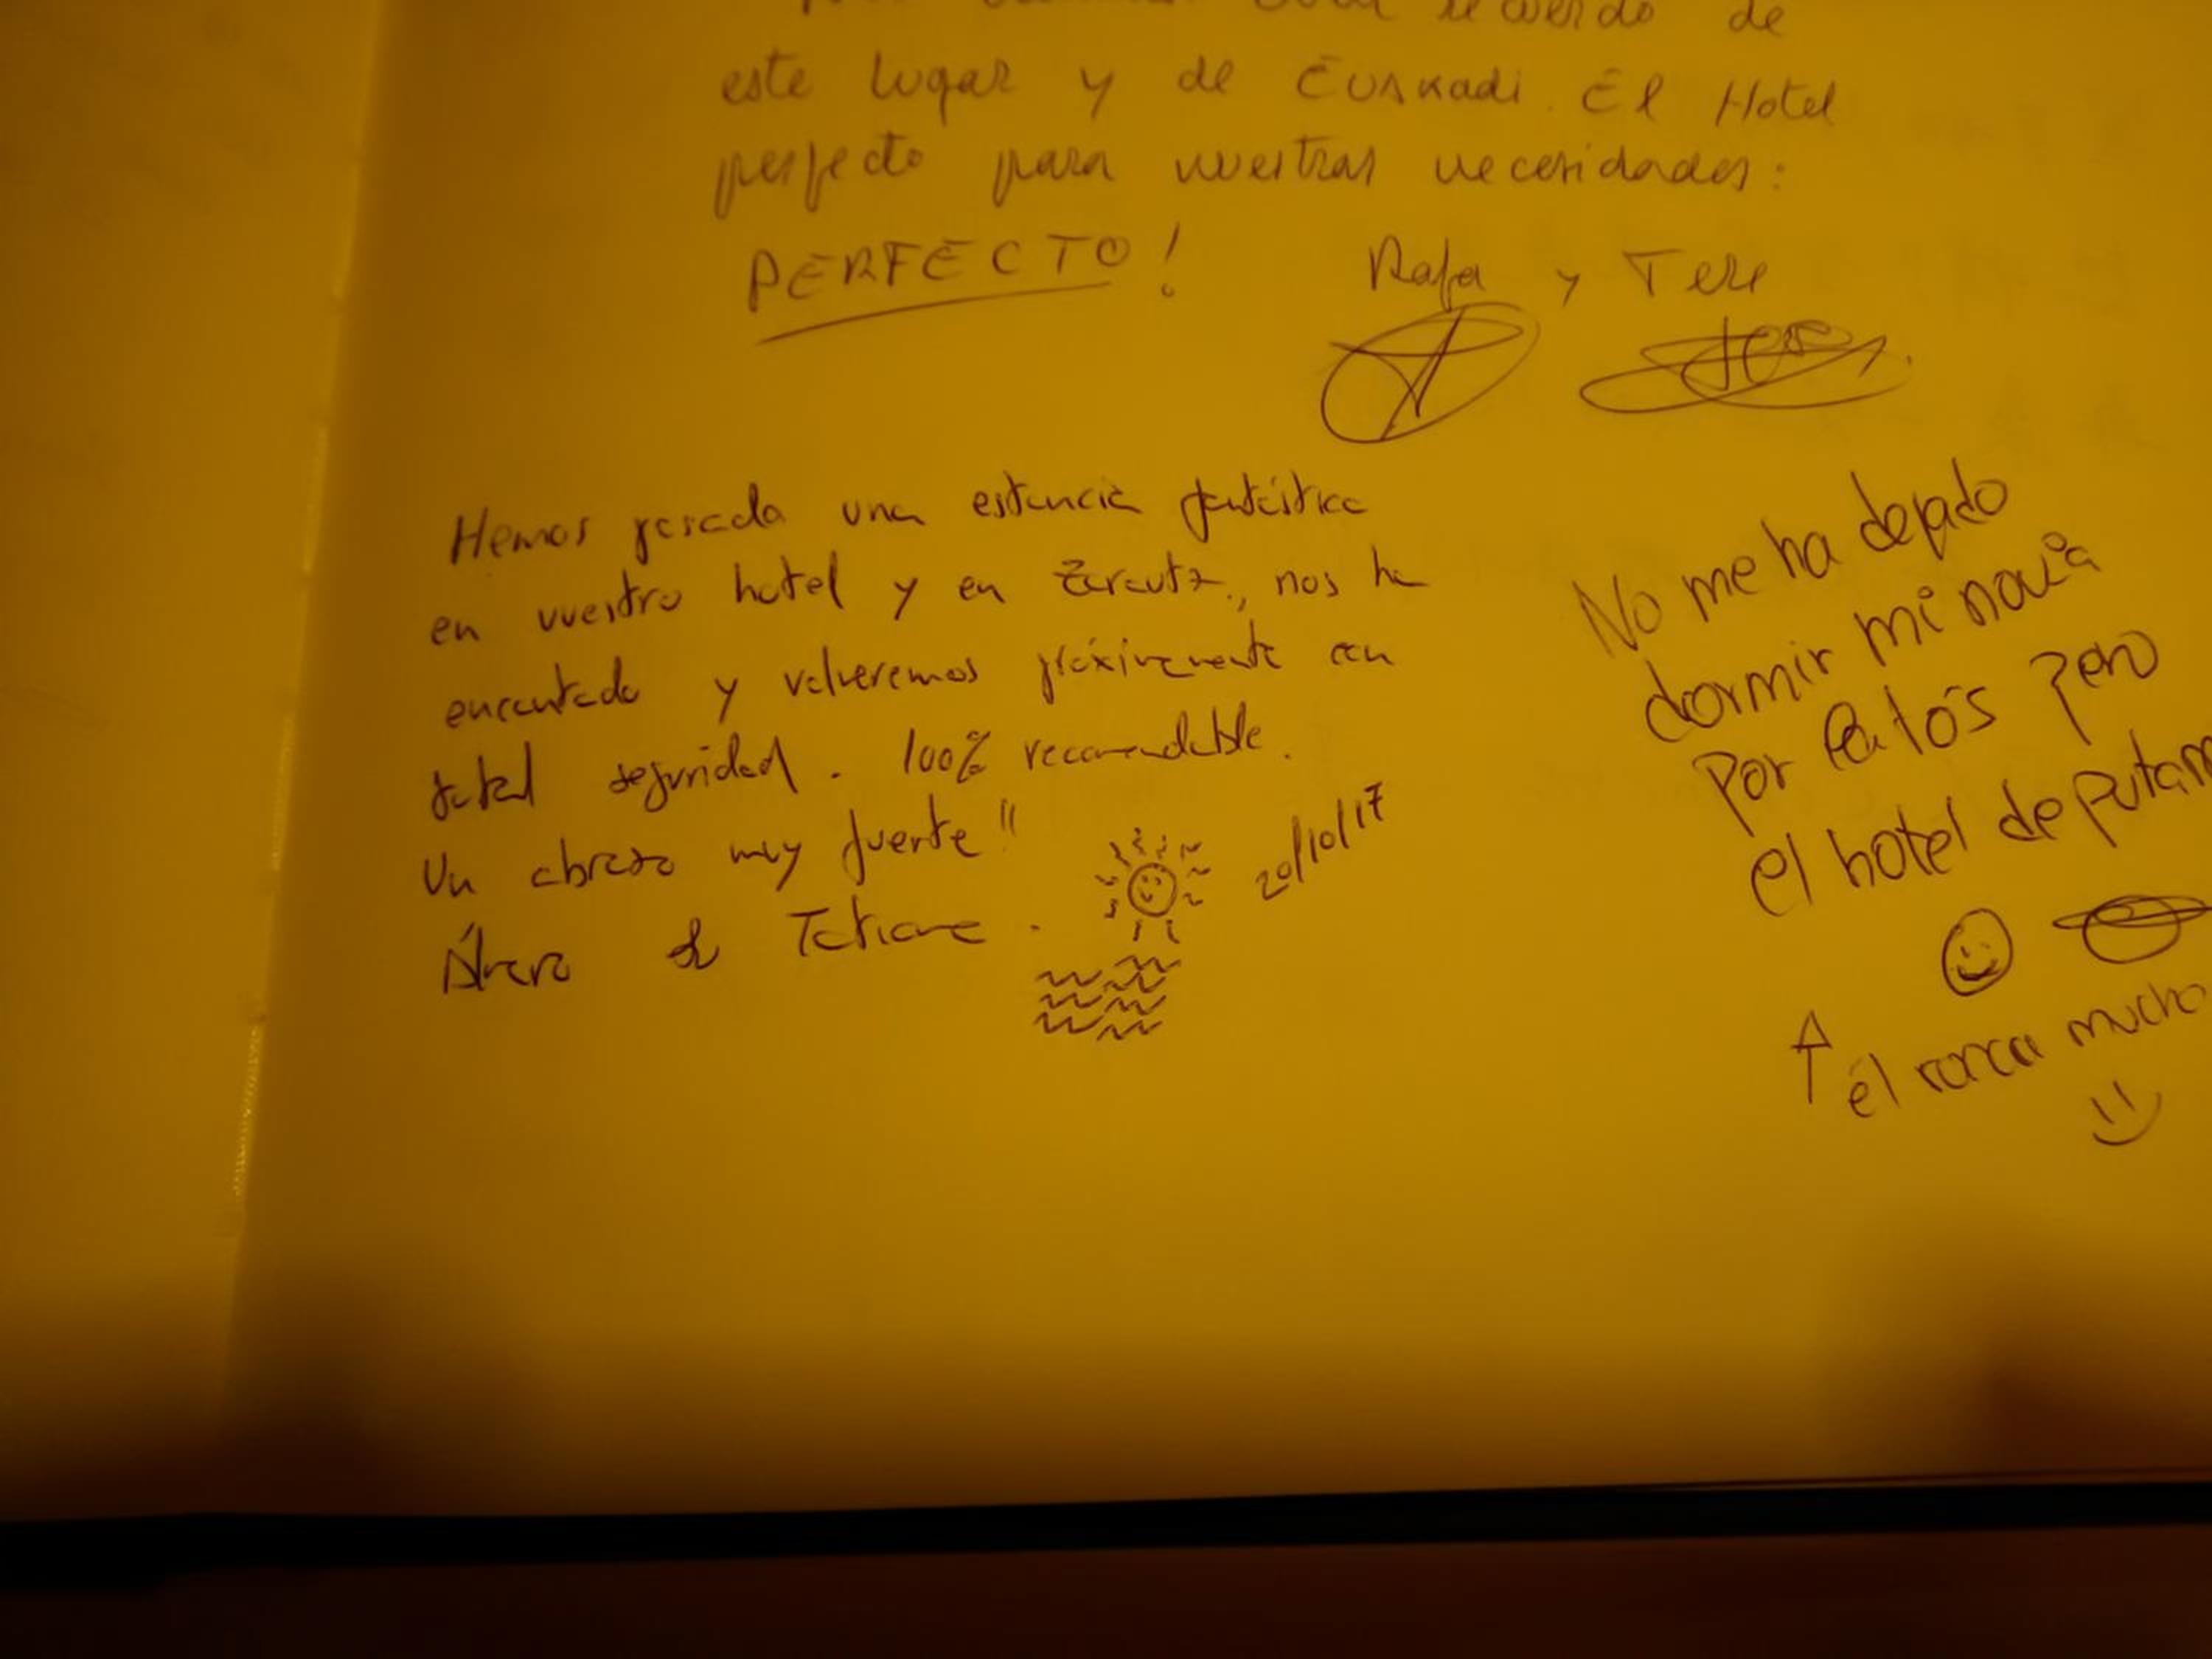 recuerdo de
este lugar y de Euskadi. El Hotel
perfecto para nuestras necesidades:
PERFECTO! Rafa y Tere
Tere
Hemos pasado una estancia fantástica
en vuestro hotel y en Zarautz, nos ha
encantado y volveremos próximamente con
total seguridad. 100% recomendable.
Un abrazo muy fuerte!!
Álvaro & Tatiana.
20/10/17
No me ha dejado
dormir mi novia
por pero
el hotel de putam
él ronca mucho